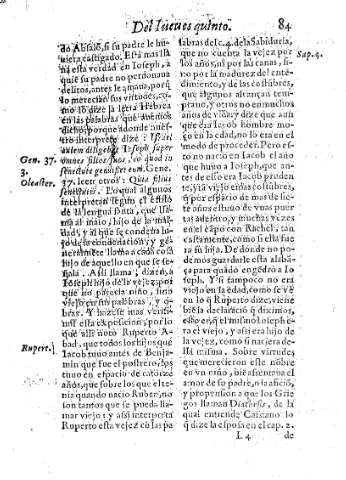 Del Iueues quinto. 84
do Absalō, si su padre le hu
uiera castigado. Està mas lla
na esta verdad en Ioseph, a
quiē su padre no perdonaua
delitos, antes le amaua, por
lo merecian sus virtudes, co-
mo lo dize la letra Hebrea
en las palabras que auemos
dicho, porque adonde nues-
tro interprete dize: Israel
autem diligebat Ioseph super
Gen. 37. omnes filios suos, eo quod in
3. senectute genuisset eum. Gene.
Oleaster. 37. leen otros: Quia filius
senectutis. Lo qual algunos
interpretan segun el estilo
de la lengua
dad, y al que se condena hi-
jo de la condenacion, y ge-
neralmente llama a cada cosa
hijo de aquello en que se se-
ñala. Assi llama, dizen, a
Ioseph hijo de la vejez, por
que no parecia niño, sino
viejo en sus palabras, y o-
bras. Y hazese mas verisi-
mil esta exposicion, por lo
que allí notò Ruperto A-
Rupert. bad, que todos los hijos que
Iacob tuuo antes de Benja-
min que fue el postrero, los
tuuo en espacio de catorze
años, que sobre los que el te-
nia quando nacio Ruben, no
son tantos que se pueda lla-
mar viejo y assi interpreta
Ruperto esta vejez cō las pa
labras de l c. 4. de la Sabiduria,
que no cuenta la vejez por Sap. 4.
los años, ni por las canas, si-
no por la madurez del entē-
dimiento, y de las costūbres,
que algunos alcançan tem-
prano, y otros no en muchos
años de vida: y assi dize aun
que de Iacob hombre mo-
ço en la edad, no lo era en el modo
de proceder. Pero es-
to no nacio en Iacob el año
que huuo a Ioseph, que an-
tes de esso era Iacob pruden
te, y à viejo en sus costūbres,
por espacio de mas de sie-
te años estuuo de vnas puer
tas adentro, y muchas vezes
en el cāpo con Rachel, tan
castamente, como si ella fue
ra su hija. De donde no po-
demos guardarle esta alabā-
ça para quādo engēdrò a Io
seph. Y si tampoco no era
viejo en la edad, como se vè
en lo q̄ Ruperto dize, viene
biē la declaraciō q̄ diximos,
esto es, q̄ el mismo Ioseph e-
ra el viejo, y assi era hijo de
la vejez, como si naciera de-
lla misma. Sobre virtudes
que merecieron este nōbre
en vn niño, biē assentaua el
amor de su padre, o la aficiō,
y propension a que los Grie
gos llaman Diathesis, de la
qual entiende Caietano lo
q̄ dize la esposa en el cap. 2.
L 4 de